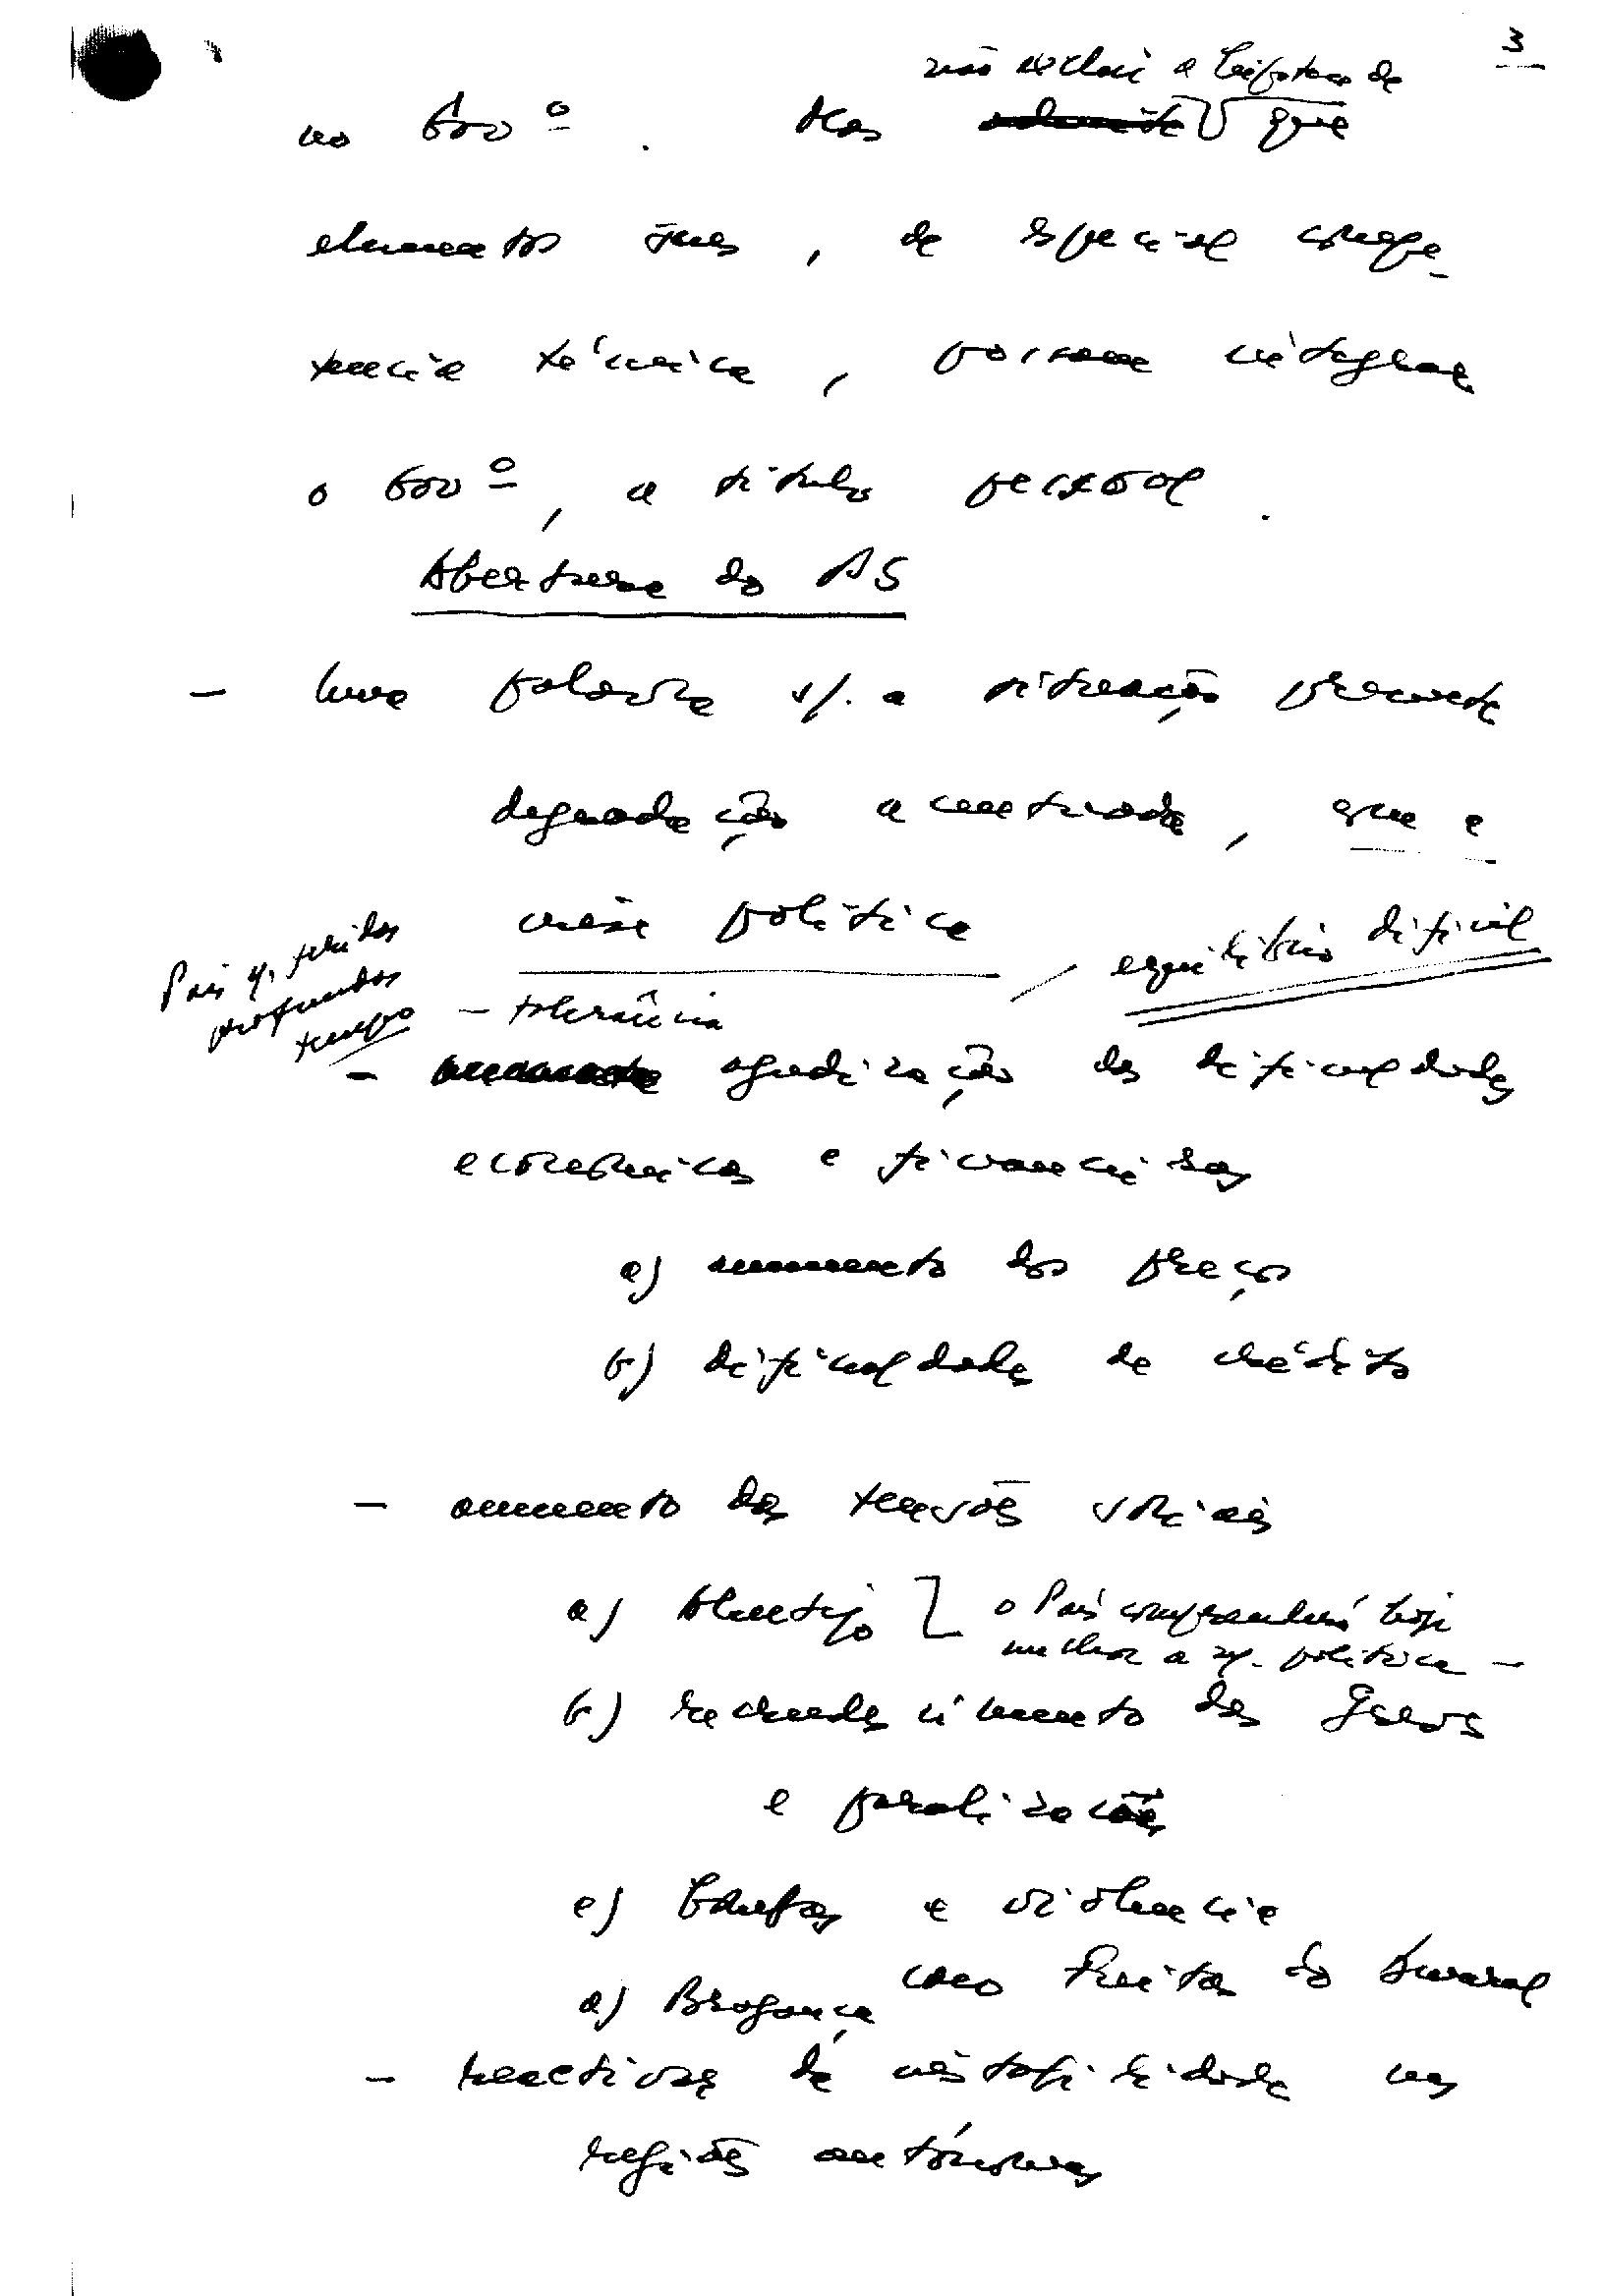 3
não exclui a hipótese de
no Govº. Mas que
elementos seus, de especial compe-
tência técnica, possam integrar
o Govº, a título pessoal.
Abertura do PS
- uma palavra s/. a situação presente
degradação acentuada, que e
crise política, equilíbrio difícil
País c/. feridas
profundas
tempo
- tolerância
- agudização das dificuldades
económicas e financeiras
a) aumento dos preços
b) dificuldades de crédito
- aumento das tensões sociais
a) Alentejo ] o País compreenderá hoje
melhor a n/. política -
b) recrudescimento das greves
e paralizações
c) bombas e violência
d) Bragança caso Freitas do Amaral
- tentativas de instabilidade nas
regiões autónomas